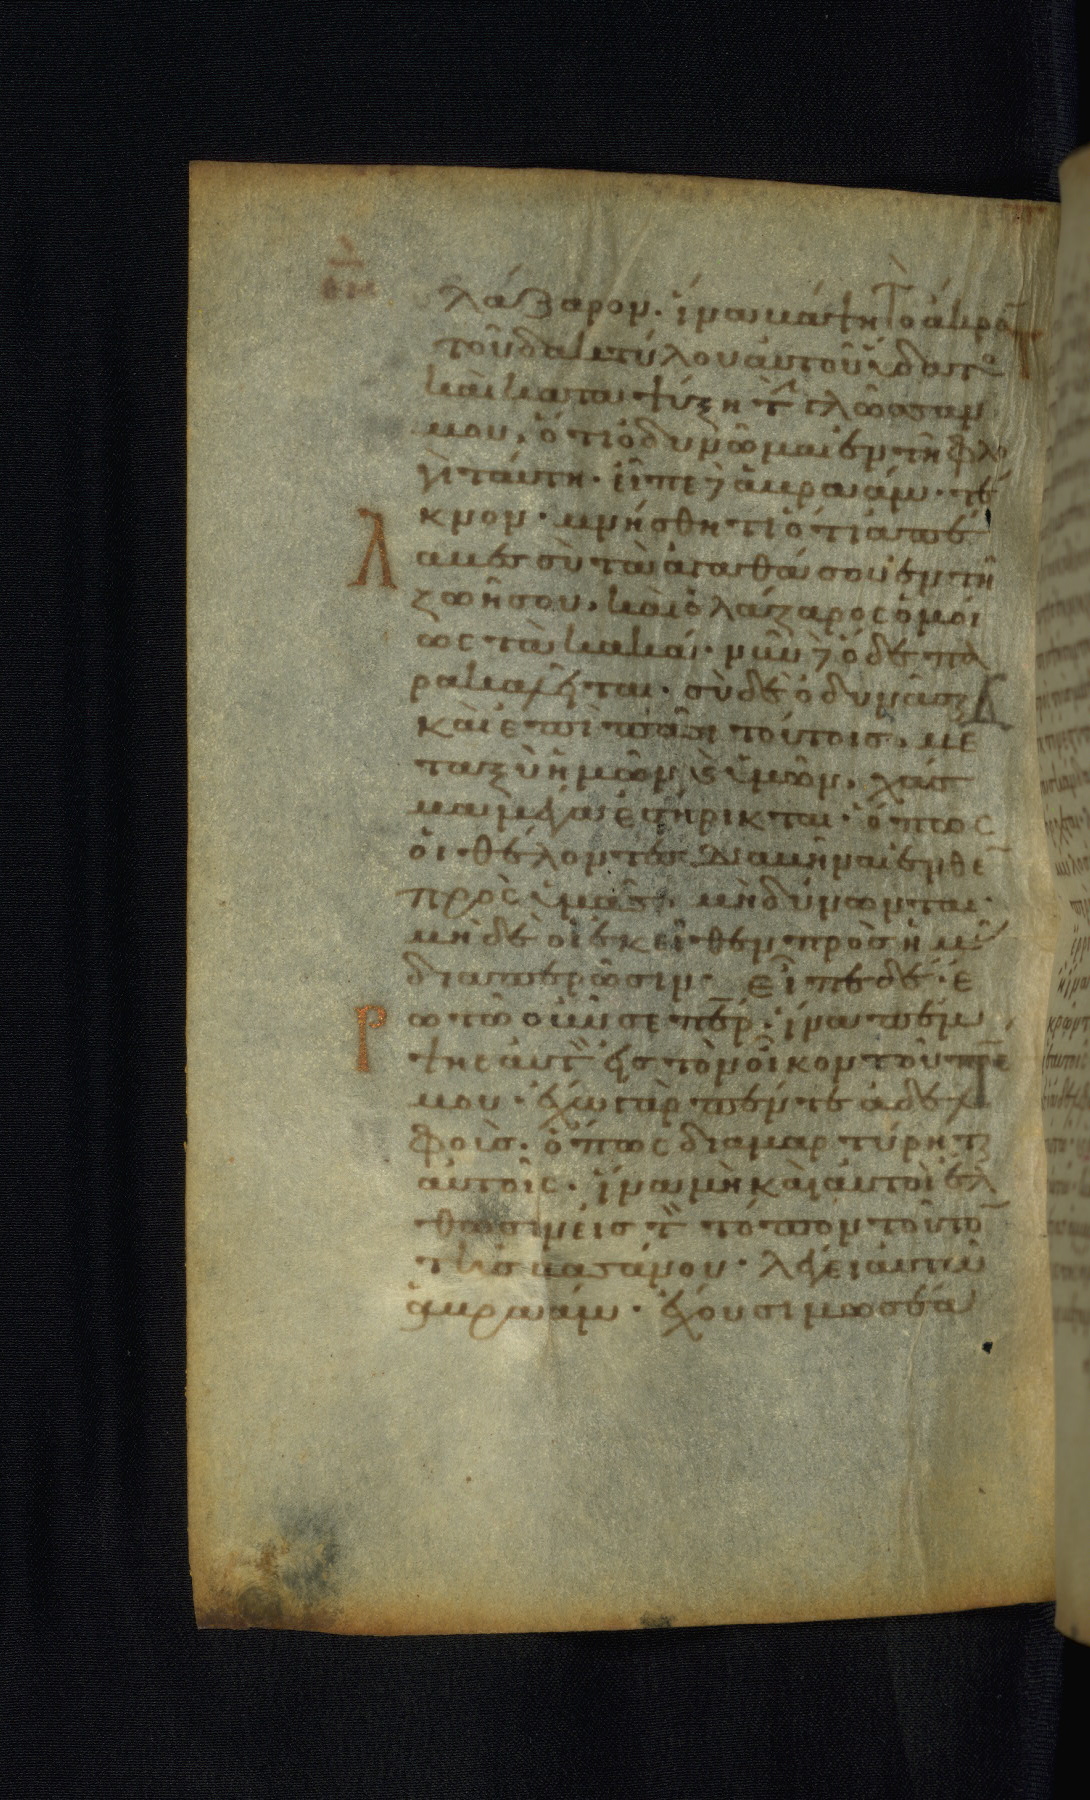 λάζαρον. ἵνα βάψη τὸ ἄκρο̅
τοῦ δακτύλου αὐτοῦ ὕδατο
καὶ καταψύξη τ̀ γλῶσσαν
μου, ὅτι ὀδυνῶμαι ἐν τῆ φλο
γὶ ταύτη. εἶπε δ ἀβραάμ. τέ
κνον. μνήσθητι ὅτι ἀπέ
λαβες σὺ τὰ ἀγαθά σου ἐν τῆ
ζωῆ σου, καὶ ὁ λάζαρος ὁμοί
ως τὰ κακά. νῦν δ ὅδε πα
ρακαλεῖται. σὺ δὲ ὀδυνᾶσαι
καὶ ἐπὶ πᾶσι τούτοις, με
ταξὺ ἡμῶν ϗ ὑμῶν, χάσ
μα μέγα ἐστήρικται. ὅπως
οἱ θέλοντες διαβῆναι ἐνθε̅
πρὸς ὑμᾶς, μὴ δύνωνται.
μηδὲ οἱ ἐκεῖθεν πρὸς ἡμᾶς
διαπερῶσιν. Εἶπε δέ. ἐ
ρωτῶ οὖν σε πε̅ρ. ἵνα πέμ
ψης αὐτ̀ εἰς τὸν οἶκον τοῦ πρ̅ς
μου. ἔχω γὰρ πέντε ἀδελ
φούς. ὅπως διαμαρτύρηται
αὐτοῖς. ἵνα μὴ καὶ αὐτοὶ ἔλ
θωσιν εἰς τ̀ τόπον τοῦτο̅
τῆς βασάνου. λέγει αὐτῶ
ἀβραάμ. ἔχουσι μωσέα